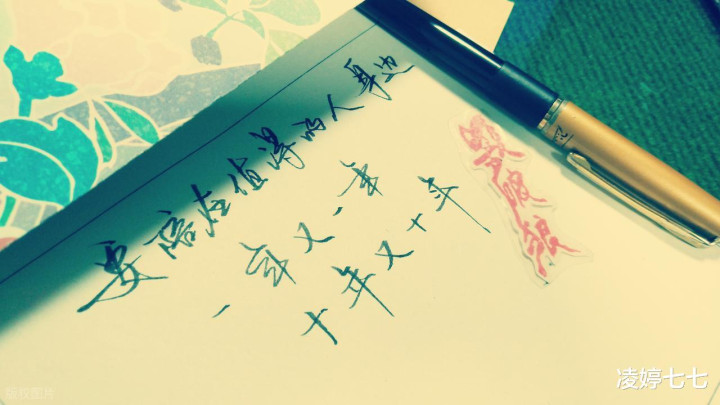 要陪在值得的人身边
一年又一年
十年又十年
凌婷七七
版权图片